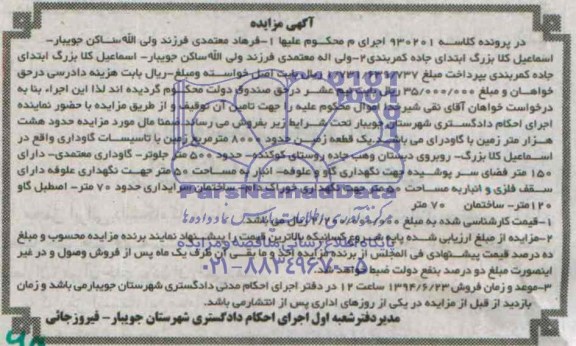 آگهی مزایده
در پرونده کلاسه ۹۳۰۲۰۱ اجرای م محکوم علیها ۱-فرهاد معتمدی فرزند ولی الله ساکن جویبار-
اسماعیل کلا بزرگ ابتدای جاده کمربندی۲-ولی اله معتمدی فرزند ولی الله ساکن جویبار- اسماعیل کلا بزرگ ابتدای
جاده کمربندی بپرداخت مبلغ ریال بابت اصل خواسته ومبلغ-ریال بابت هزینه دادرسی درحق
خواهان و مبلغ ۳۵/۰۰۰/۰۰۰ ریال نیم عشر درحق صندوق دولت محکوم گردیده اند لذا این اجراء بنا به
درخواست خواهان آقای نقی شیرجدا اموال محکوم علیه را جهت تامین آن توقیف و از طریق مزایده با حضور نماینده
اجرای احکام دادگستری شهرستان جویبار تحت شرایط زیر بفروش می رساند. ضمنا مال مورد مزایده حدود هشت
هزار متر زمین با گاودرای می باشد. یک قطعه زمین حدود ۸۰۰۰ مترمربع زمین با تاسیسات گاوداری واقع در
اسماعیل کلا بزرگ- روبروی دبستان وهب جاده روستای کوکنده- حدود ۵۰۰ متر جلوتر- گاوداری معتمدی- دارای
۱۵۰ متر فضای سر پوشیده جهت نگهداری گاو و علوفه- انبار به مساحت ۵۰ متر جهت نگهداری علوفه دارای
سقف فلزی و انباربه مساحت ۵۰ متر جهت نگهداری خوراک دام- ساختمان سرایداری حدود ۷۰ متر- اصطبل گاو
۱۲۰متر- ساختمان ۷۰ متر
ParsNamadData
۱-قیمت کارشناسی شده به مبلغ ریال می باشد.
۲-مزایده از مبلغ ارزیابی شده پایه شروع کسانیکه بالاترین قیمت را پیشنهاد نمایند برنده مزایده محسوب و مبلغ
پایگاه اطلاع رسانی مناقصه و مزایده
ده درصد قیمت پیشنهادی فی المجلس از برنده مزایده اخذ و مابقی آن ظرف یک ماه پس از فروش وصول و در غیر
اینصورت مبلغ دو درصد بنفع دولت ضبط خواهد شد.
۰۲۱-۸۸۳۴۹۶۷۰-۵
۳-موعد و زمان فروش ۱۳۹۴/۶/۲۳ ساعت ۱۲ در دفتر اجرای احکام مدنی دادگستری شهرستان جویبارمی باشد و زمان
بازدید از قبل از مزایده در یکی از روزهای اداری پس از انتشارمی باشد.
مدیردفترشعبه اول اجرای احکام دادگستری شهرستان جویبار- فیروزجائی